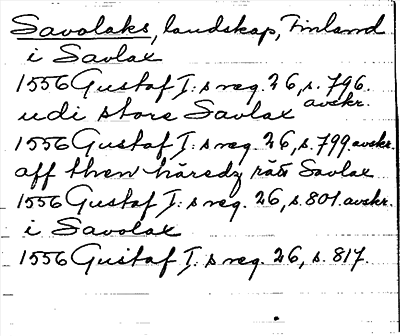 Savolaks, landskap, Finland
i Savlax
1556 Gustaf I:s reg. 26, s. 796. avskr.
udi store Savlax
1556 Gustaf I:s reg. 26, s. 799 avskr.
aff then häredz rätt Savlax
1556 Gustaf I:s reg. 26, s. 801. avskr.
i Savolax
1556 Gustaf I:s reg. 26, s. 817.